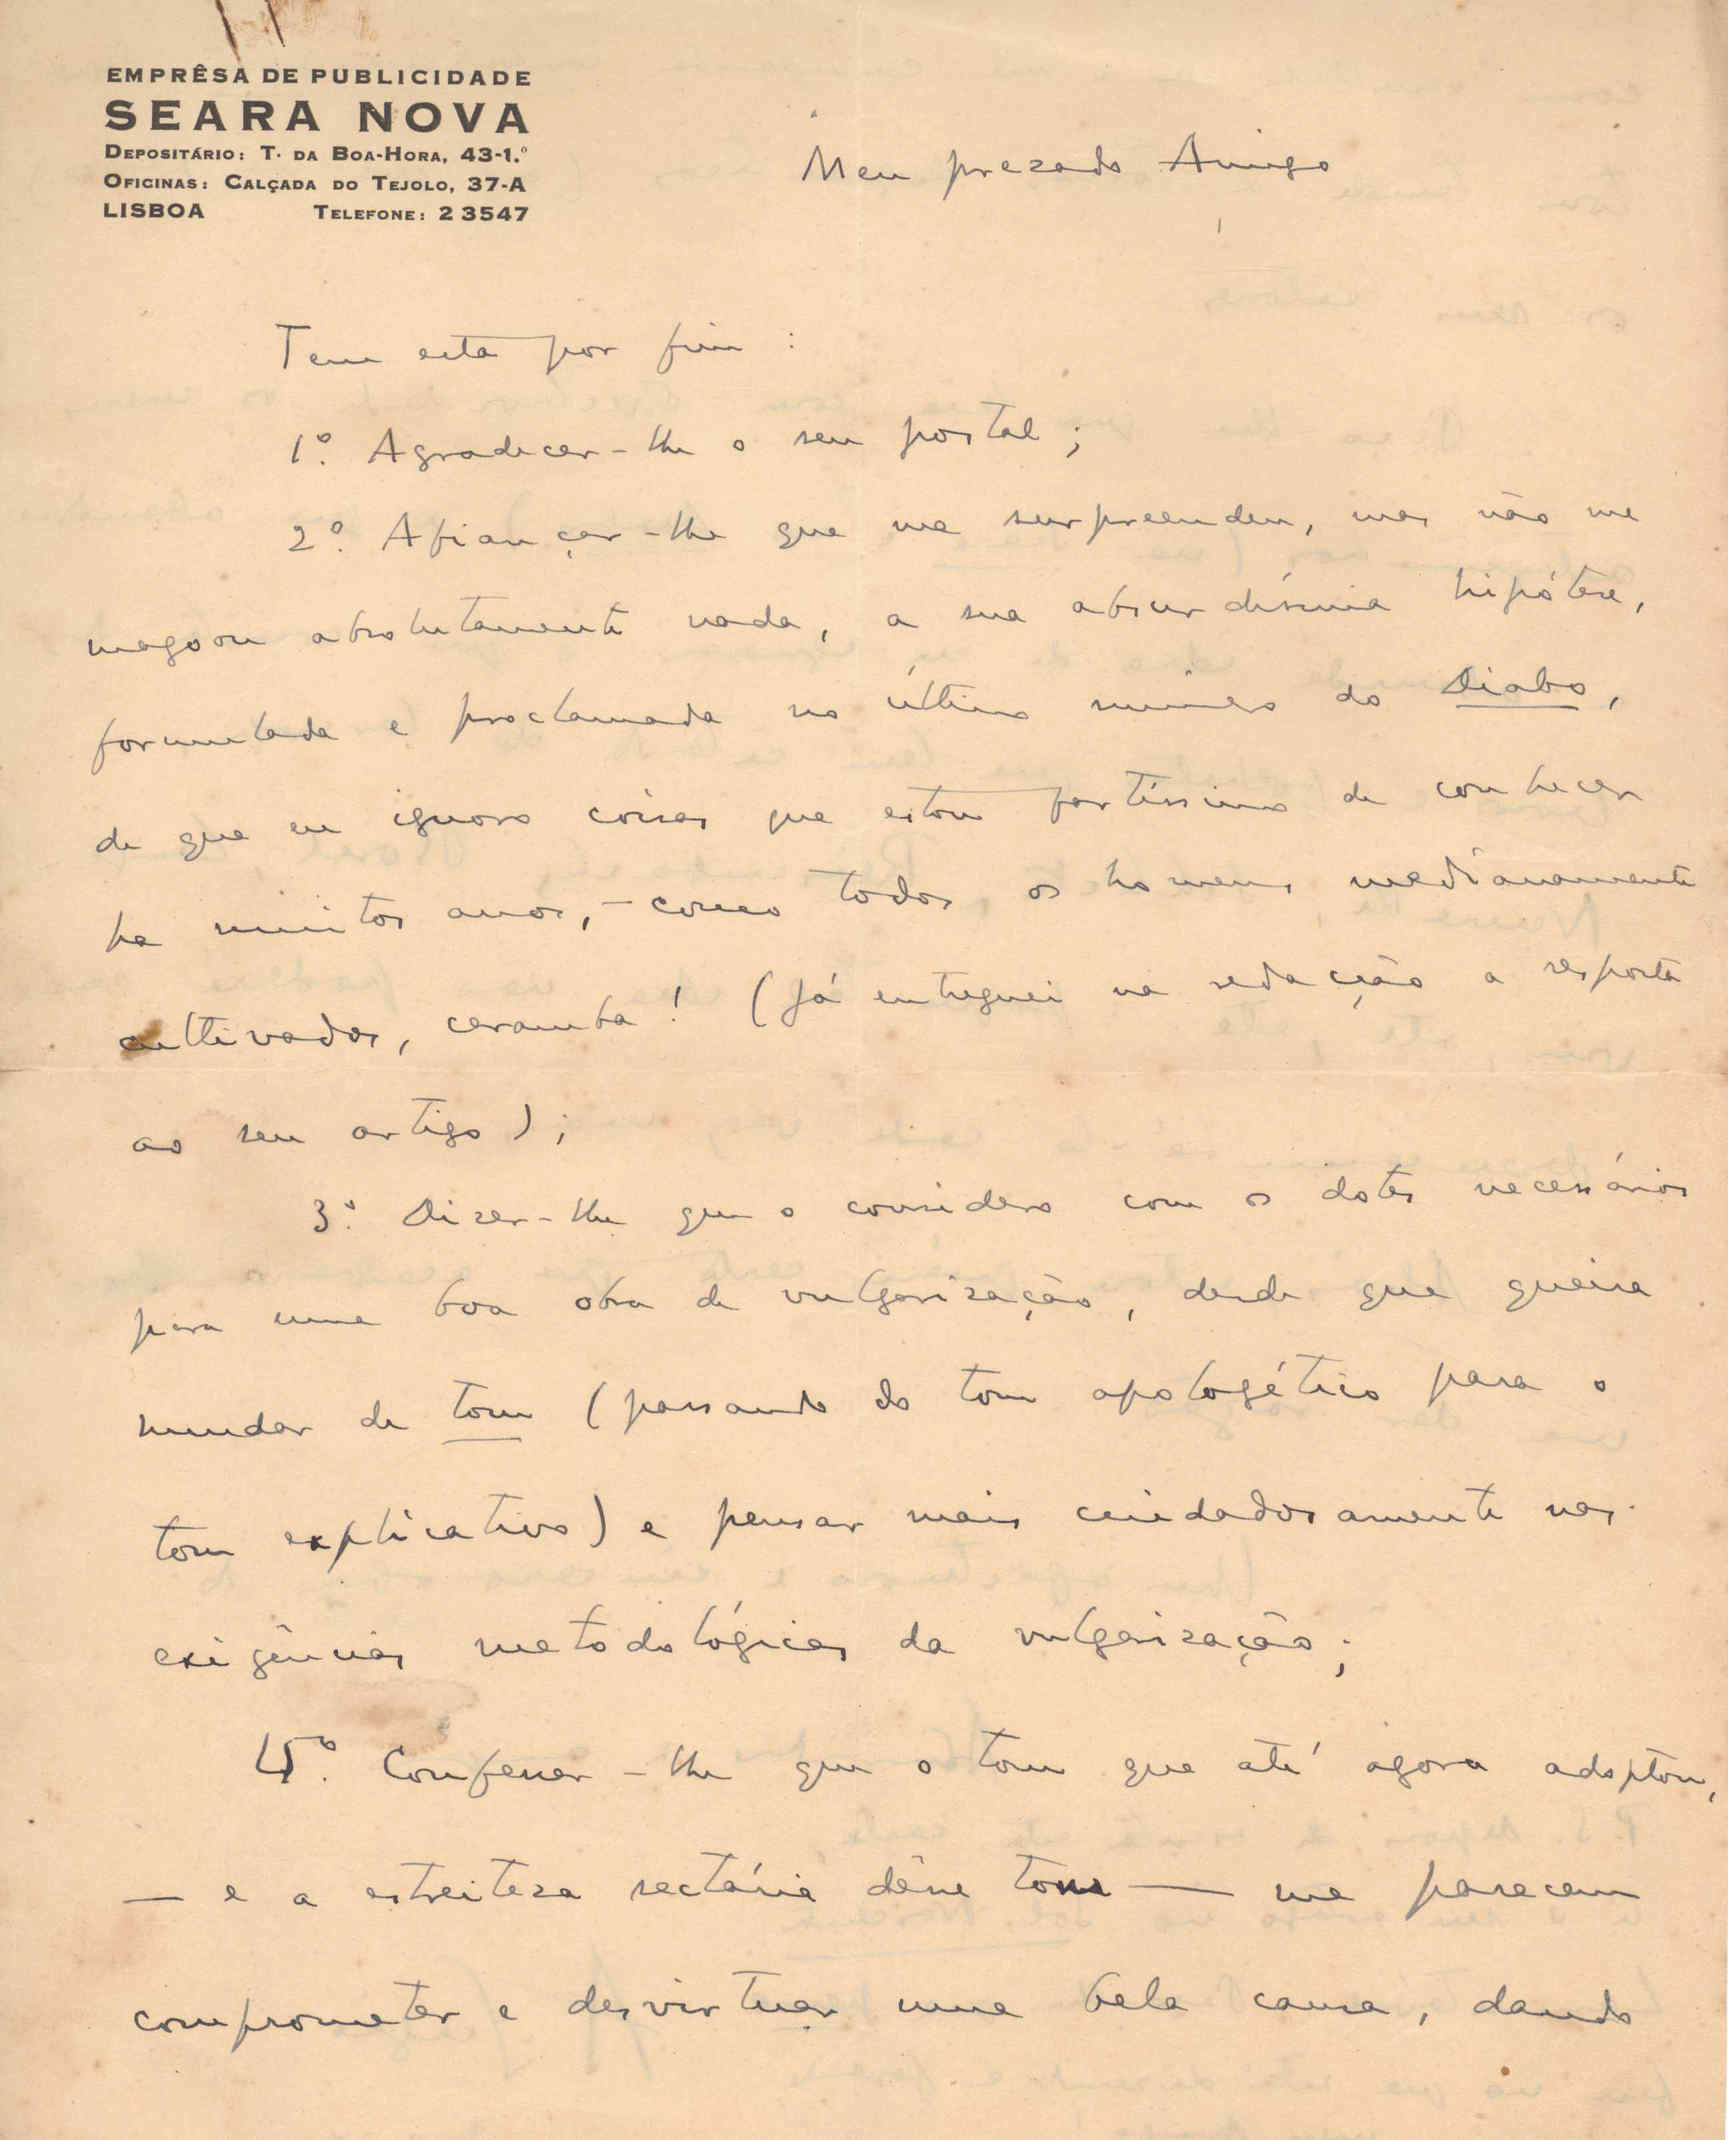 EMPRÊSA DE PUBLICIDADE
SEARA NOVA
DEPOSITÁRIO: T. DA BOA-HORA, 43-1.º
OFICINAS: CALÇADA DO TEJOLO, 37-A
LISBOA TELEFONE: 23547
Meu prezado Amigo
Tem esta por fim:
1º. Agradecer-lhe o seu postal;
2º. Afiançar-lhe que me surpreendeu, mas não me
magoou absolutamente nada, a sua absurdíssima hipótese,
formulada e proclamada no último número do Diabo,
de que eu ignoro coisas que estou fartíssimo de conhecer
ha muitos anos, - como todos os homens medianamente
cultivados, caramba! (Já entreguei na redacção a resposta
ao seu artigo);
3º. Dizer-lhe que o considero com os dotes necessários
para uma boa obra de vulgarização, desde que queira
mudar de tom (passando do tom apologético para o
tom explicativo) e pensar mais cuidadosamente nas
exigências metodológicas da vulgarização;
4º. Confessar-lhe que o tom que até agora adoptou,
— e a estreiteza sectária dêsse tom — me parecem
comprometer e desvirtuar uma bela causa, dando